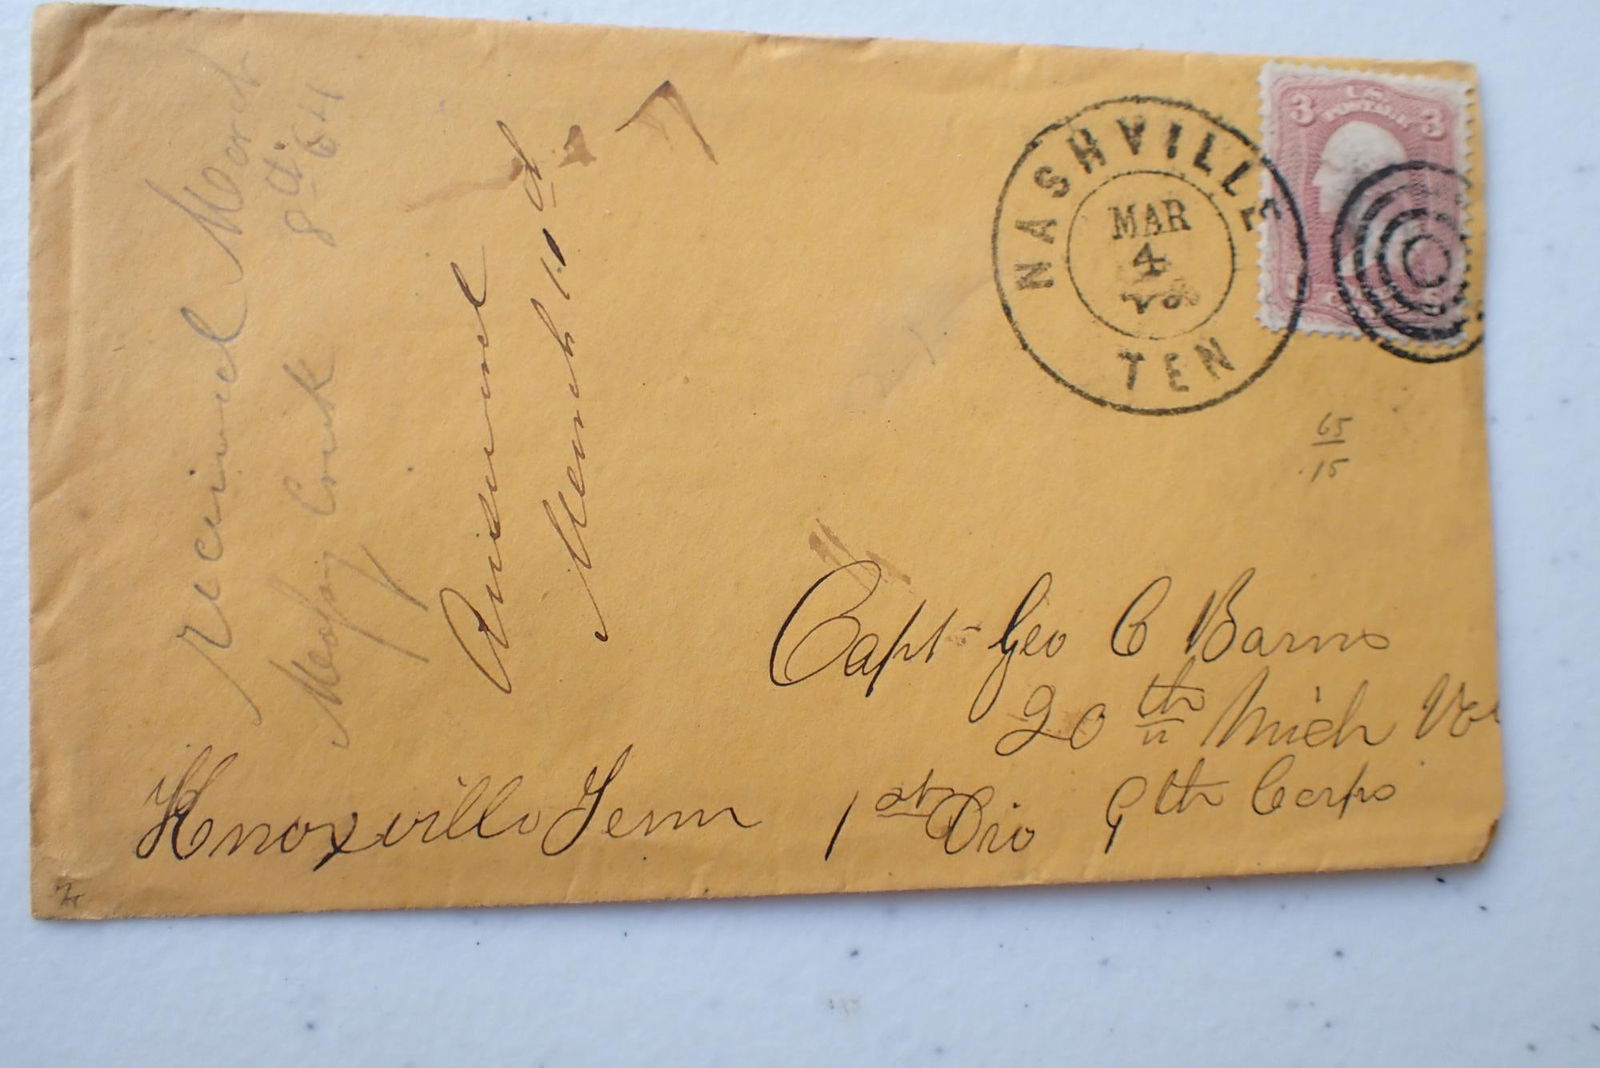 Received March
8th 64
Creek
Answered
March 11d
NASHVILLE
TEN
MAR
4
U.S.
POSTAGE
3 3
65
15
Capt Geo C Barns
20th Mich Vol
1st Div 9th Corps
Knoxville Tenn